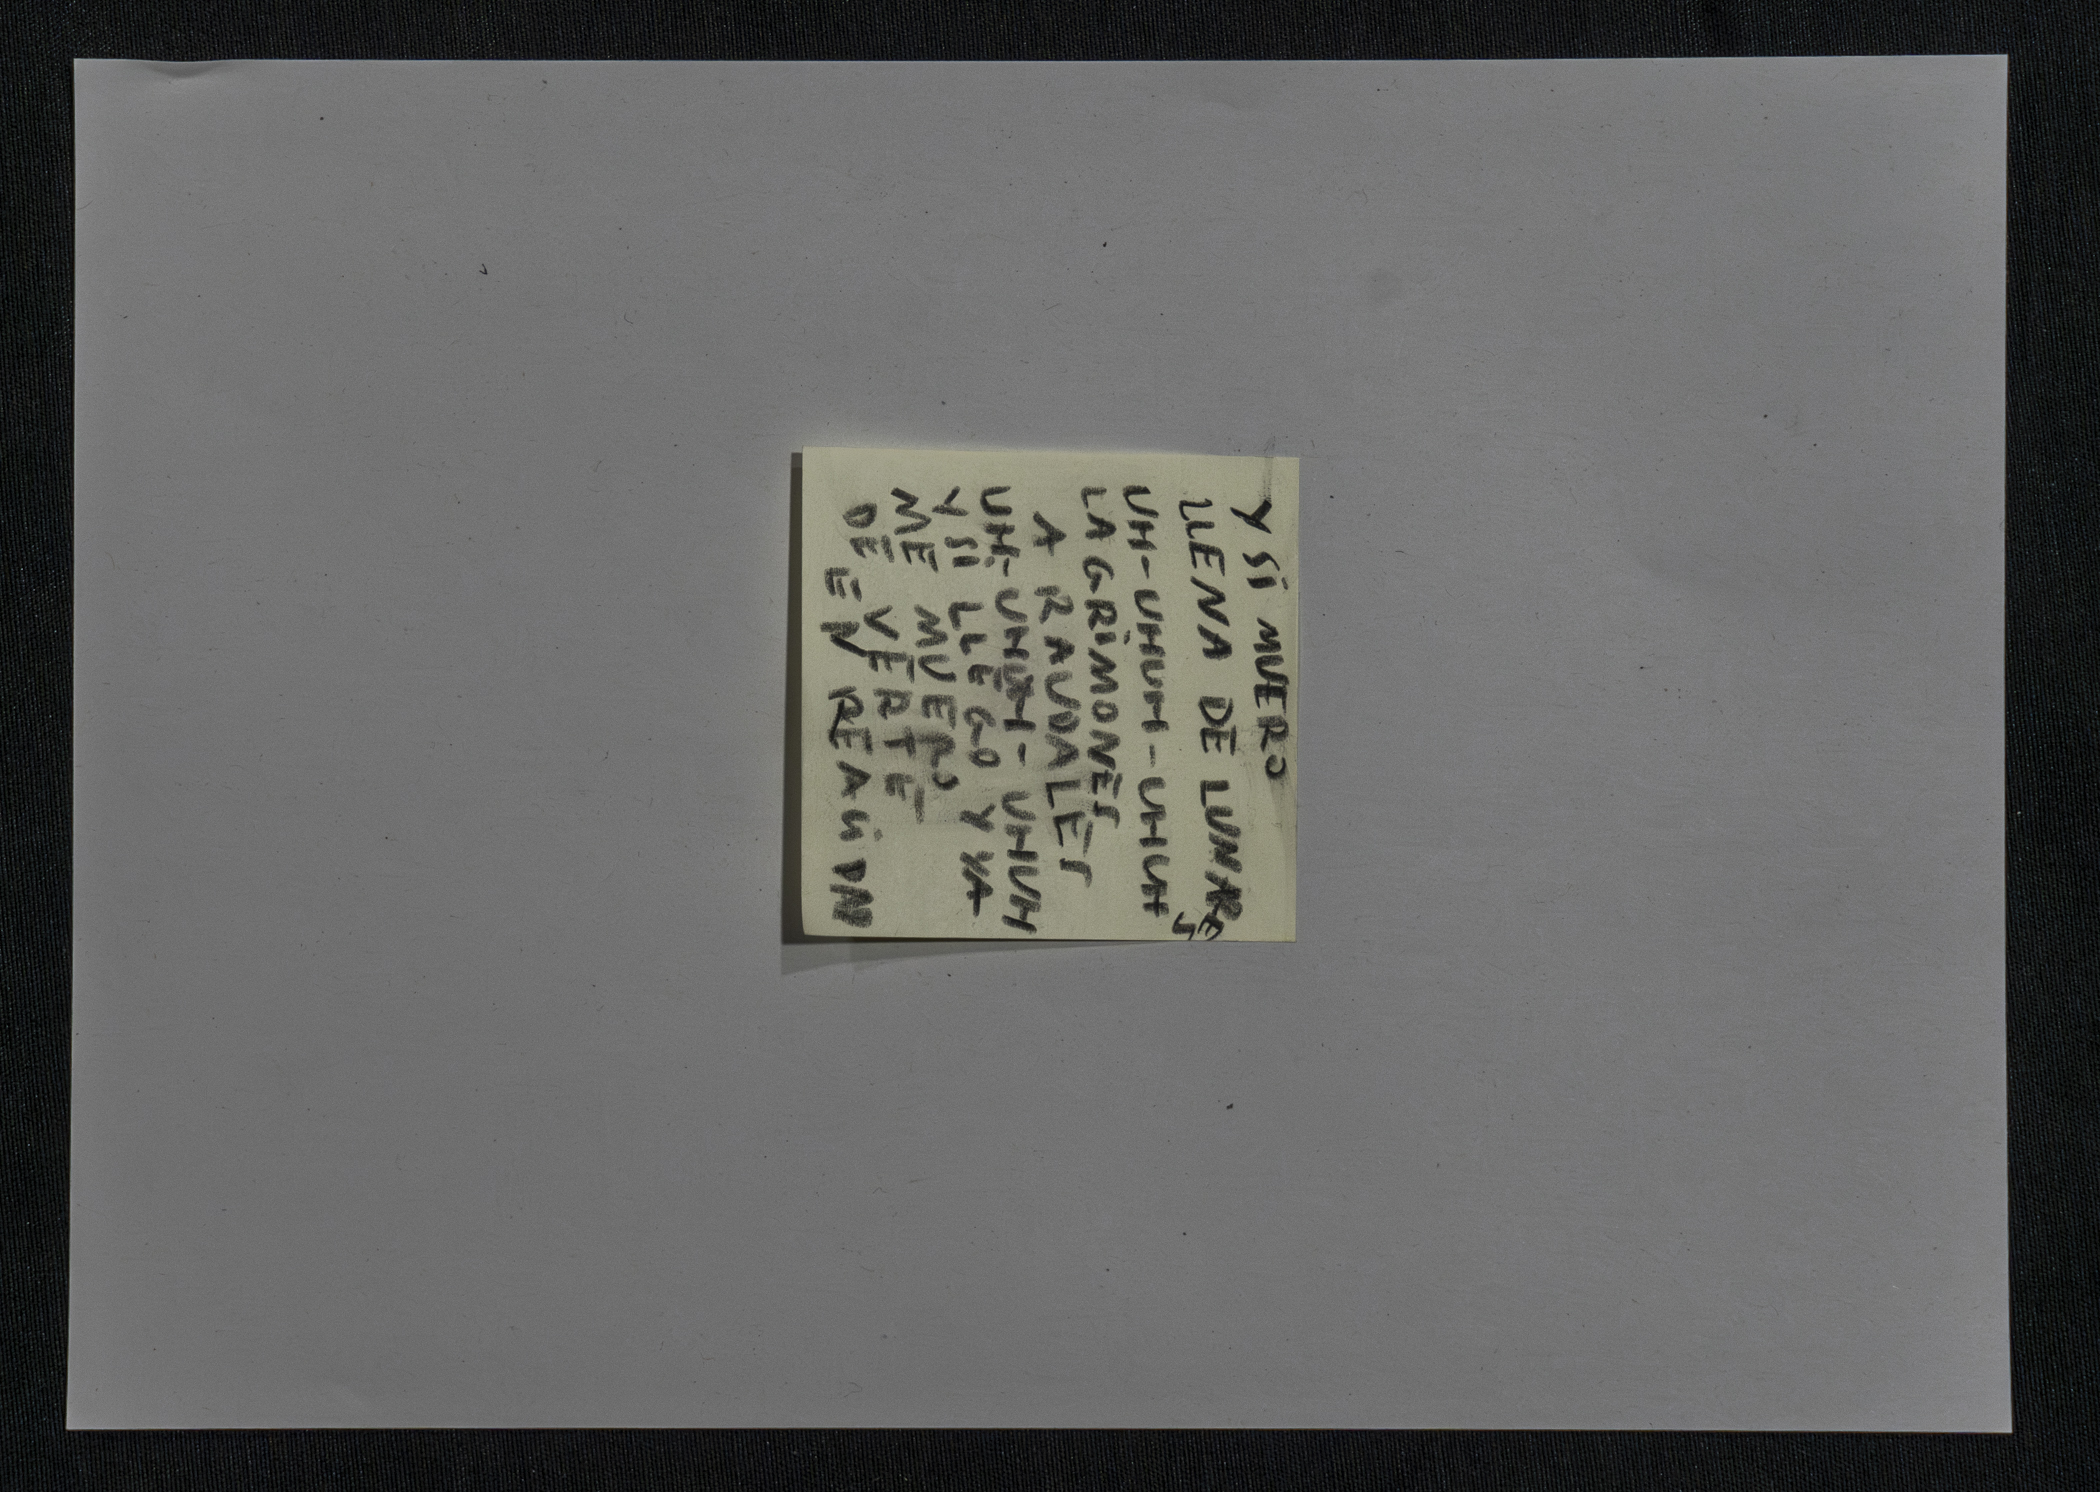 Y SI MUERO
LLENA DE LUNARES
UH-UHUH-UHUH
LAGRIMONES
A RAUDALES
UH-UHUH-UHUH
Y SI LLEGO Y YA
ME MUERO
DE VERTE
EN REACIÓN